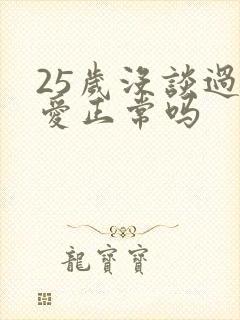 25歲沒談過
愛正常吗
龍寶寶